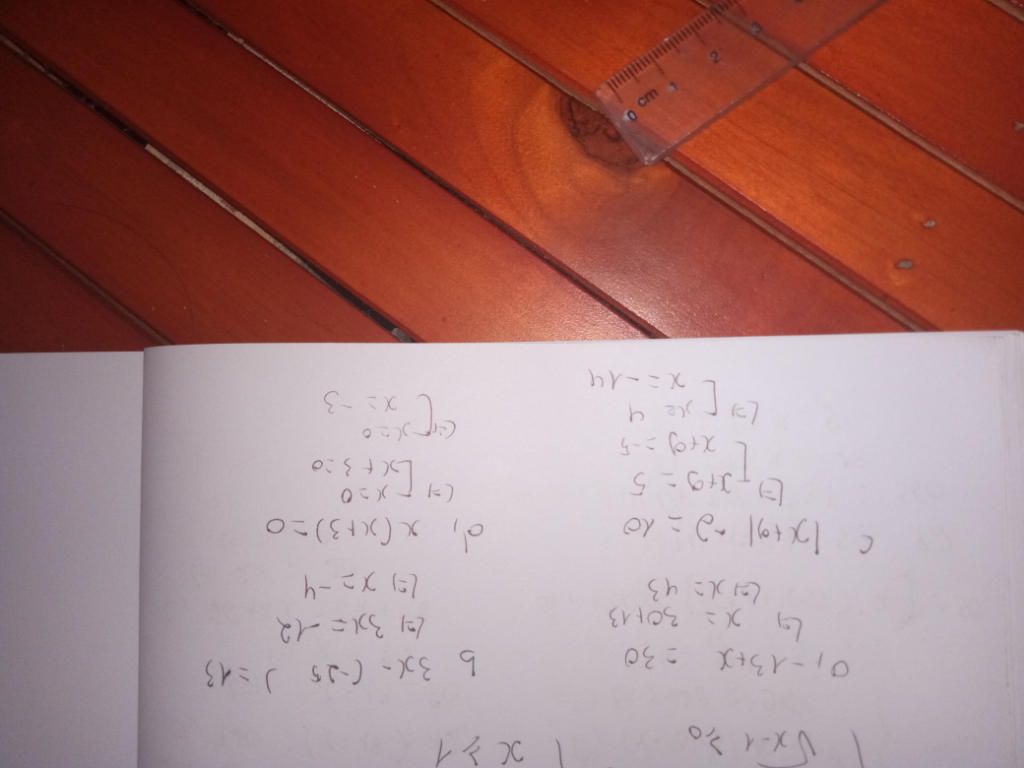 √x-1 ≥0 | x ≥ 1
a, -13+x = 30
⇔ x = 30+13
⇔ x = 43
b 3x - (-25 ) = 13
⇔ 3x = -12
⇔ x = -4
c |x+9| .2 = 10
⇔ [ x+9 = 5
[ x+9 = -5
⇔ [ x = 4
[ x = -14
d, x(x+3)=0
⇔ [ x=0
[ x+3=0
⇔ [ x=0
[ x = -3
0 cm 1 2